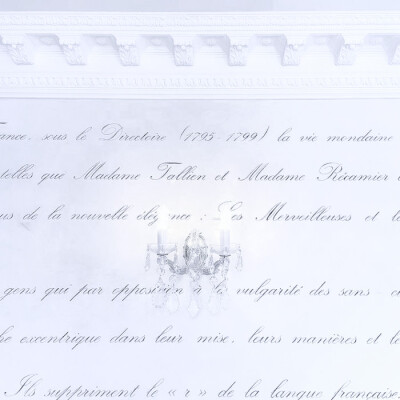 France, sous le Directoire (1795-1799) la vie mondaine
telles que Madame Tallien et Madame Récamier
de la nouvelle élégance : Les Merveilleuses et
gens qui par opposition à la vulgarité des sans-
excentrique dans leur mise, leurs manières et
Ils suppriment le « r » de la langue française